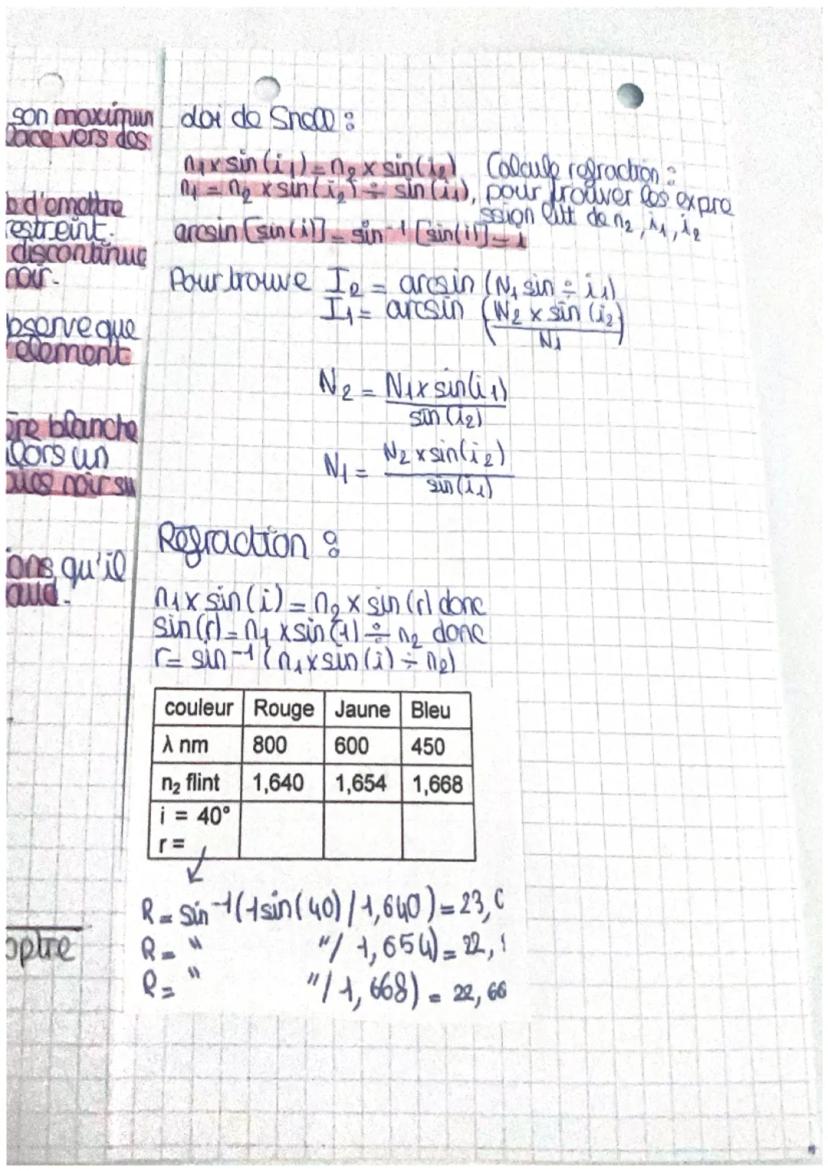 son maximum
place vers des
d'emettre
restreint.
discontinue
noir.
observe que
element
blanche
alors un
noir su
ons qu'il
aud.
optre
Loi de Snell :
n1 x sin(i1) = n2 x sin(i2)
n1 = n2 x sin(i2) ÷ sin(i1),
arcsin [sin(i)] = sin⁻¹ [sin(i)] = i
Calcule refraction :
pour trouver les expre
ssion litt de n2, i1, i2
Pour trouve I2 = arcsin (N1 sin ÷ i1)
I1 = arcsin (N2 x sin(i2) / N1)
N2 = N1 x sin(i1) / sin(i2)
N1 = N2 x sin(i2) / sin(i1)
Refraction :
n1 x sin(i) = n2 x sin(r) donc
sin(r) = n1 x sin(i) ÷ n2 donc
r = sin⁻¹ (n1 x sin(i) ÷ n2)
couleur Rouge Jaune Bleu
λ nm 800 600 450
n₂ flint 1,640 1,654 1,668
i = 40°
r =
R = sin⁻¹(1sin(40) / 1,640) = 23,0
R = " "/ 1,654) = 22,
R = " "/ 1,668) = 22,66